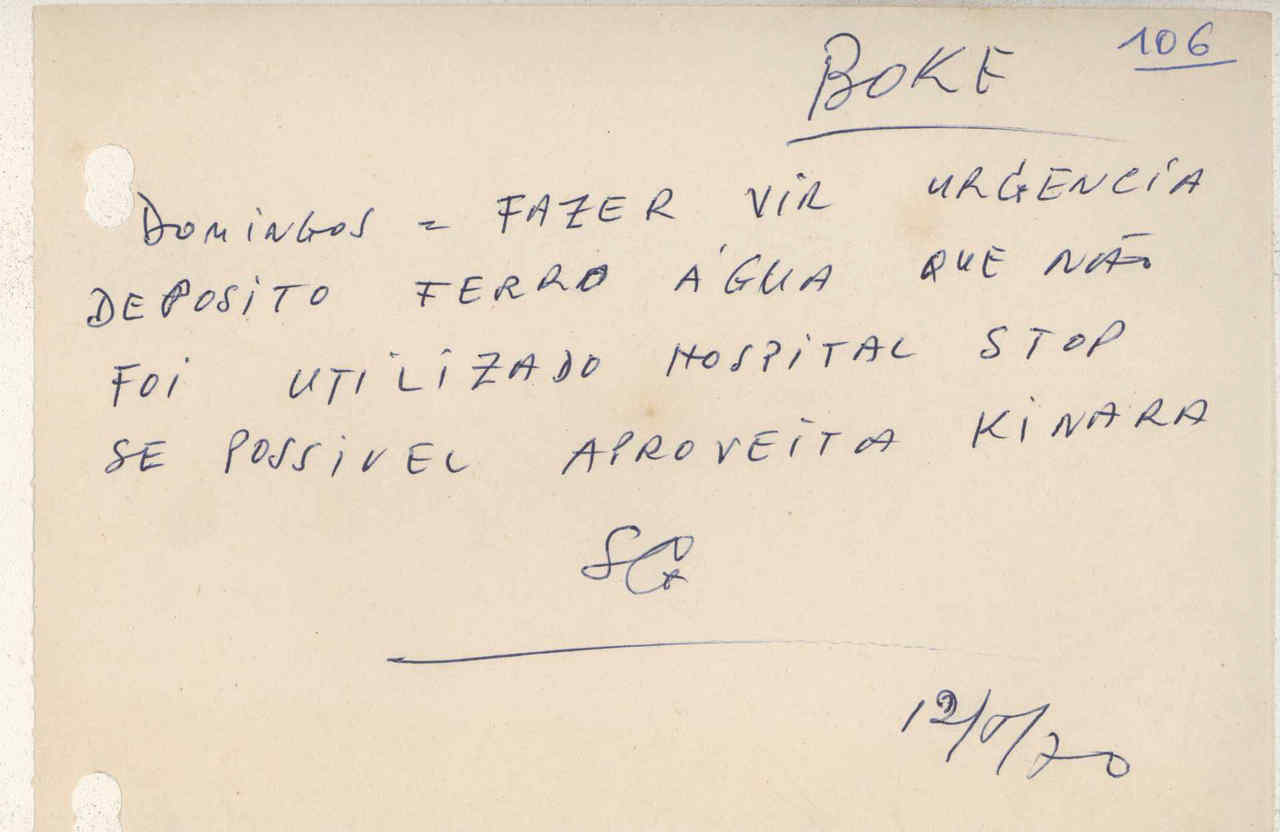 106
BOKE
DOMINGOS = FAZER VIR URGENCIA
DEPOSITO FERRO ÁGUA QUE NÃO
FOI UTILIZADO HOSPITAL STOP
SE POSSIVEL APROVEITA KINARA
12/5/70